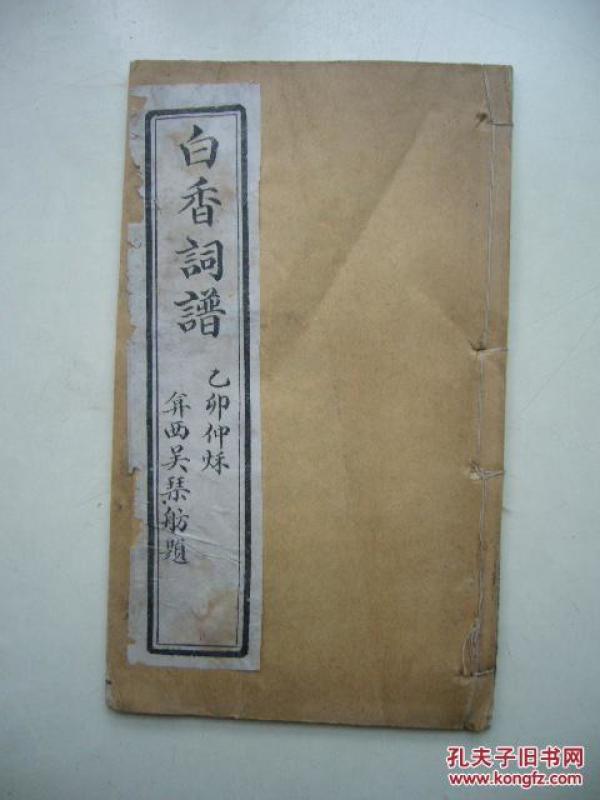 白香詞譜
乙卯仲秌
弇西吴琹舫題
孔夫子旧书网
www.kongfz.com